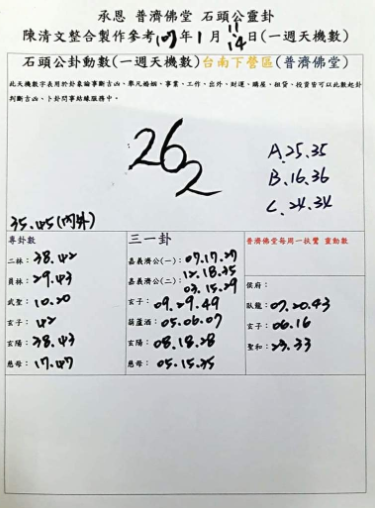 承恩 普濟佛堂 石頭公靈卦
陳清文整合製作參考107年1月11日(一週天機數)
14
石頭公卦動數(一週天機數)台南下營區(普濟佛堂)
此天機數字表用於卦象論事斷吉凶、舉凡婚姻、事業、工作、出外、財運、購屋、租貸、投資皆可以此數起卦
判斷吉凶、卜卦問事結緣服務中。
262
A.25.35
B.16.36
C.24.34
35.45(內外)
專卦數
二林:38.42
員林:29.43
武聖:10.20
玄子:42
玄陽:38.43
慈母:17.47
三一卦
嘉義濟公(一):07.17.27
12.18.35
嘉義濟公(二):03.15.29
玄子:09.29.49
葫蘆酒:05.06.07
玄陽:08.18.28
慈母:05.15.35
普濟佛堂每周一扶鸞 靈動數
侯府:
臥龍:07.20.43
玄子:06.16
聖和:23.33